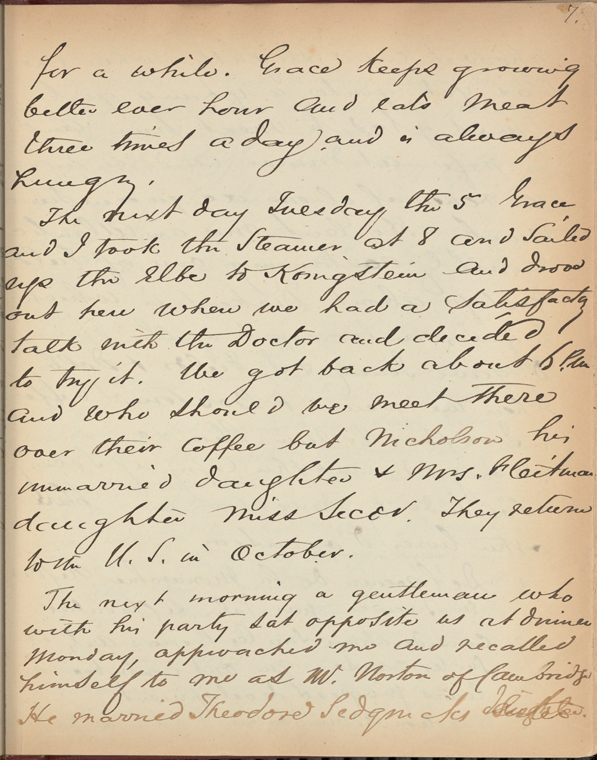 7.
for a while. Grace keeps growing
better ever hour and eats meat
three times a day, and is always
hungry.
The next day Tuesday the 5 Grace
and I took the Steamer at 8 and Sailed
up the Elbe to Konigstein and drove
out here when we had a satisfacty
talk with the Doctor and decided
to try it. We got back about 6 P.m
and who should we meet there
over their Coffee but Nicholson his
unmarried daughter & Mrs. Fleitman
daughter Miss Secor. They return
to the U. S. in October.
The next morning a gentleman who
with his party sat opposite us at dinner
Monday, approached me and recalled
himself to me as Mr. Norton of Cambridge
He married Theodore Sedgwicks daughter.